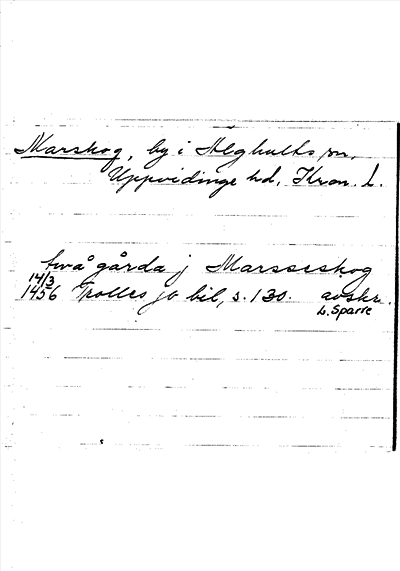 Marskog, by i Älghults sn,
Uppvidinge hd, Kron. L.
två gårda j Marsseskog
14/3
1456 Trolles jb bil, s. 130. avskr.
L. Sparre